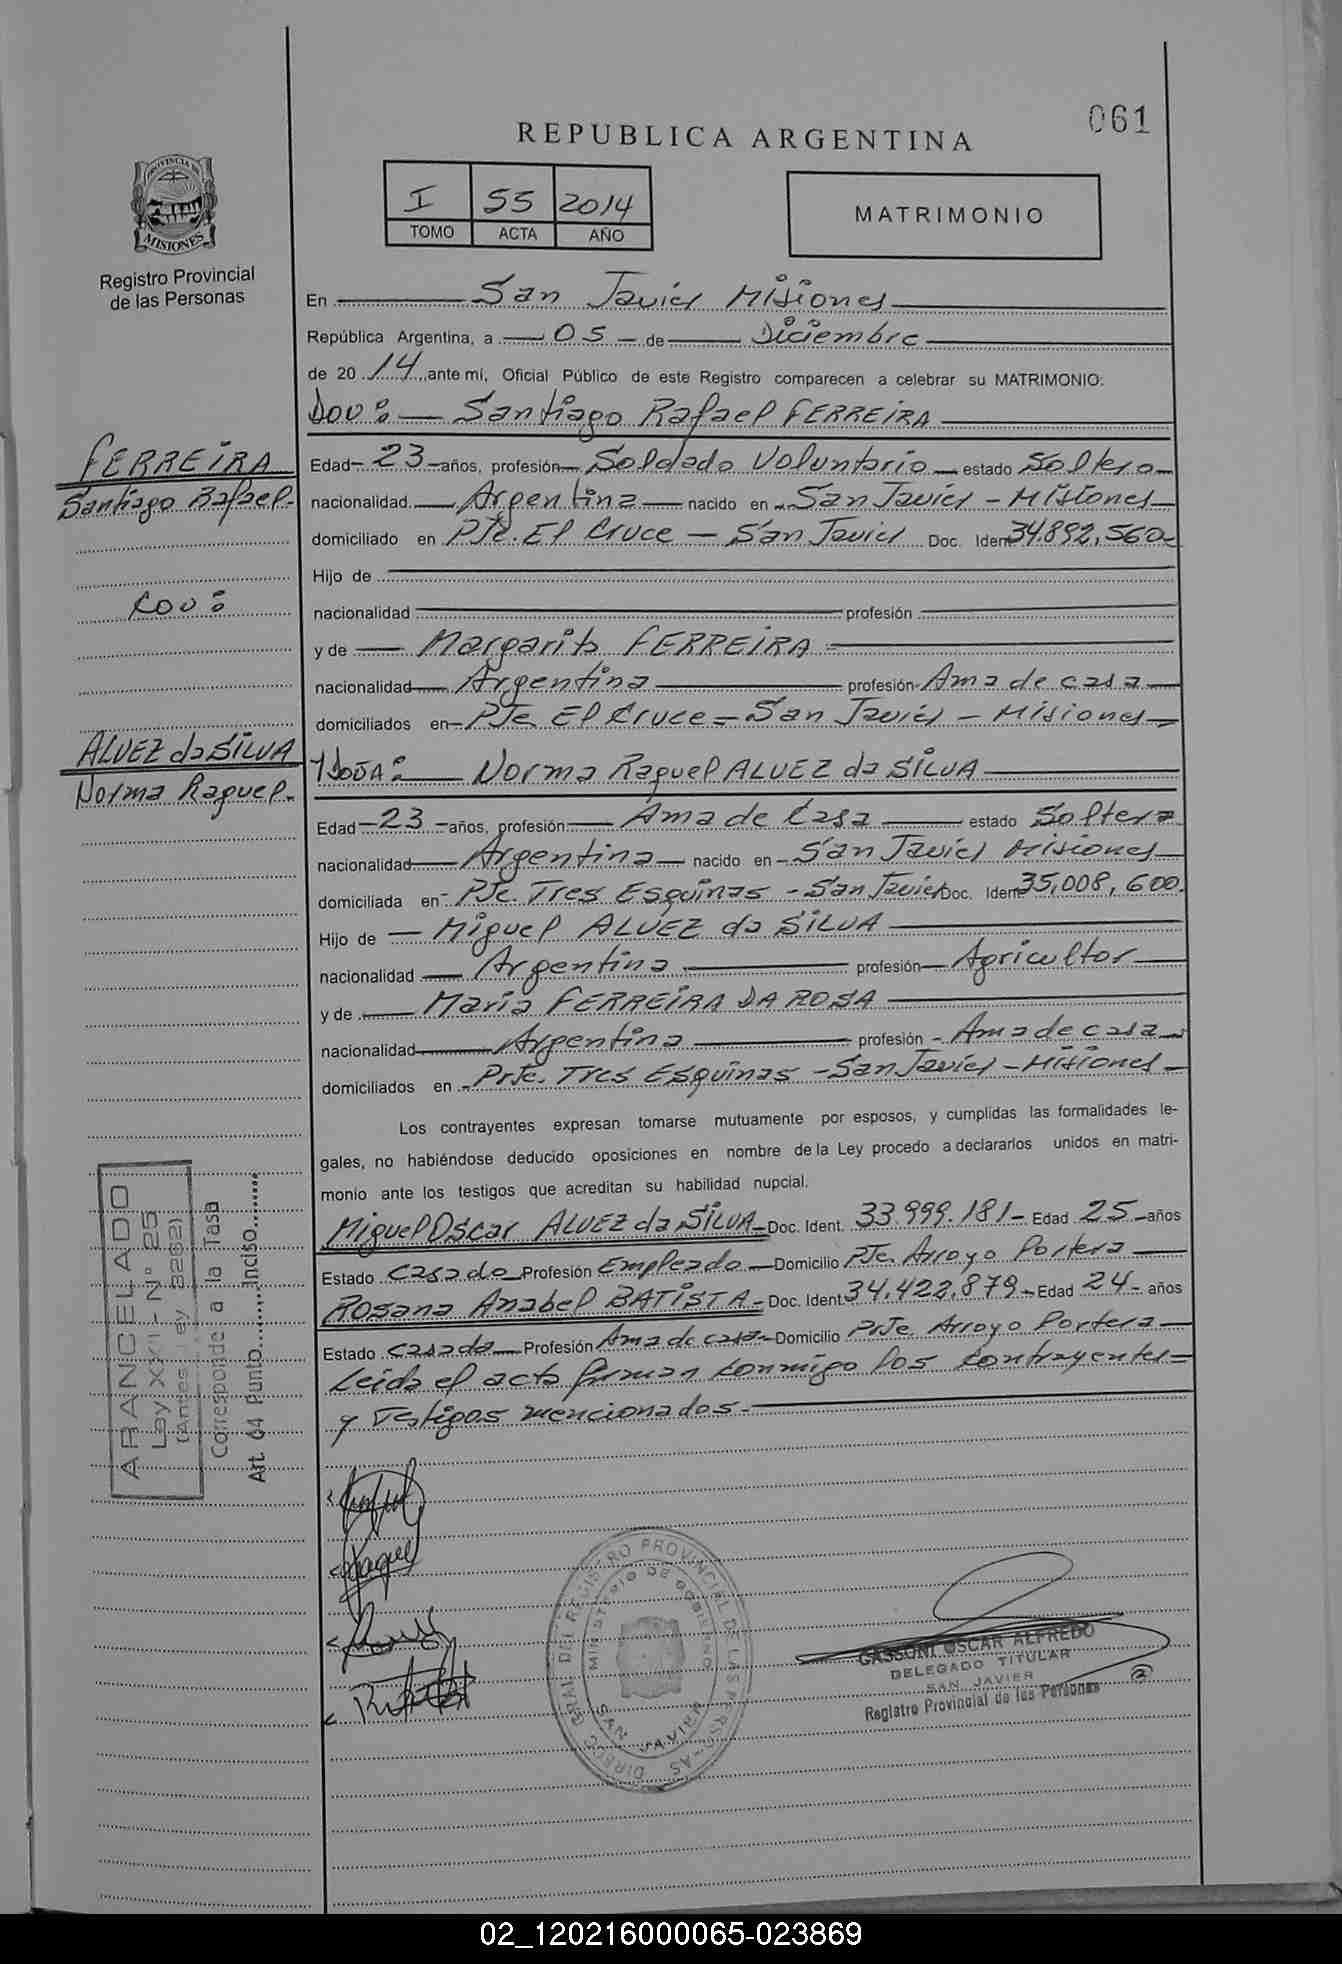 061
REPUBLICA ARGENTINA
I 55 2014
TOMO ACTA AÑO
MATRIMONIO
PROVINCIA DE
MISIONES
Registro Provincial
de las Personas
En San Javier Misiones
República Argentina, a 05 de Diciembre
de 20 14 ante mí, Oficial Público de este Registro comparecen a celebrar su MATRIMONIO:
Santiago Rafael FERREIRA
FERREIRA
Santiago Rafael.
Edad 23 años, profesión Soldado Voluntario estado Soltero
nacionalidad Argentina nacido en San Javier - Misiones
domiciliado en Pje. El Cruce - San Javier Doc. Ident 34.892,560
Hijo de
con:
nacionalidad profesión
y de Margarita FERREIRA
nacionalidad Argentina profesión Ama de casa
domiciliados en Pje El Cruce - San Javier - Misiones
ALVEZ da SILVA
Norma Raquel.
Norma Raquel ALVEZ da SILVA
Edad 23 años, profesión Ama de Casa estado Soltera
nacionalidad Argentina nacido en San Javier Misiones
domiciliada en Pje. Tres Esquinas - San Javier Doc. Ident 35,008,600.
Hijo de Miguel ALVEZ da SILVA
nacionalidad Argentina profesión Agricultor
y de Maria FERREIRA DA ROSA
nacionalidad Argentina profesión Ama de casa
domiciliados en Prje. Tres Esquinas - San Javier - Misiones
Los contrayentes expresan tomarse mutuamente por esposos, y cumplidas las formalidades le-
gales, no habiéndose deducido oposiciones en nombre de la Ley procedo a declararlos unidos en matri-
monio ante los testigos que acreditan su habilidad nupcial.
Miguel Oscar ALVEZ da SILVA Doc. Ident. 33.999.181 Edad 25 años
Estado Casado Profesión Empleado Domicilio Pje Arroyo Portera
Rosana Anabel BATISTA Doc. Ident 34,422,879 Edad 24 años
Estado Casada Profesión Ama de casa Domicilio Prje Arroyo Portera
Leida el acta firman conmigo los contrayentes
y Testigos mencionados.
ARANCELADO
Ley XXII - N° 25
(Antes Ley 3262)
Corresponde a la Tasa
Art. 04 Punto........Inciso........
Raquel
DIRECC. GRAL. DEL REGISTRO PROVINCIAL DE LAS PERSONAS
MINISTERIO DE GOBIERNO
SAN JAVIER
GASSONI OSCAR ALFREDO
DELEGADO TITULAR
SAN JAVIER
Registro Provincial de las Personas
02_120216000065-023869